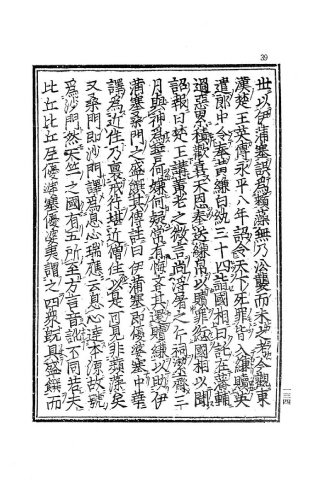 39
世以伊蒲塞誤爲頻藻無乃沿襲而未之考今觀東
漢楚王英傳永平八年詔令天下死罪皆入縑贖英
遣郎中令奉黃縑白紈三十匹詣國相曰託在蕃輔
過惡累積歡喜大恩奉送縑帛以贖罪國相以聞
詔報曰楚王誦黃老之微言尚浮屠之仁祠潔齋三
月與神爲誓何嫌何疑當有悔吝其還贖縑以助伊
蒲塞桑門之盛饌傳註曰伊蒲塞即優婆塞中華
譯爲近住万言戒行堪近僧住以是可見非頻藻矣
又桑門即沙門譯爲息心瑞應云息心達本源故號
爲沙門然天竺之國有五所至方言音訛不同若夫
比丘比丘尼優婆塞優婆夷謂之四衆既具盛饌而
一三四